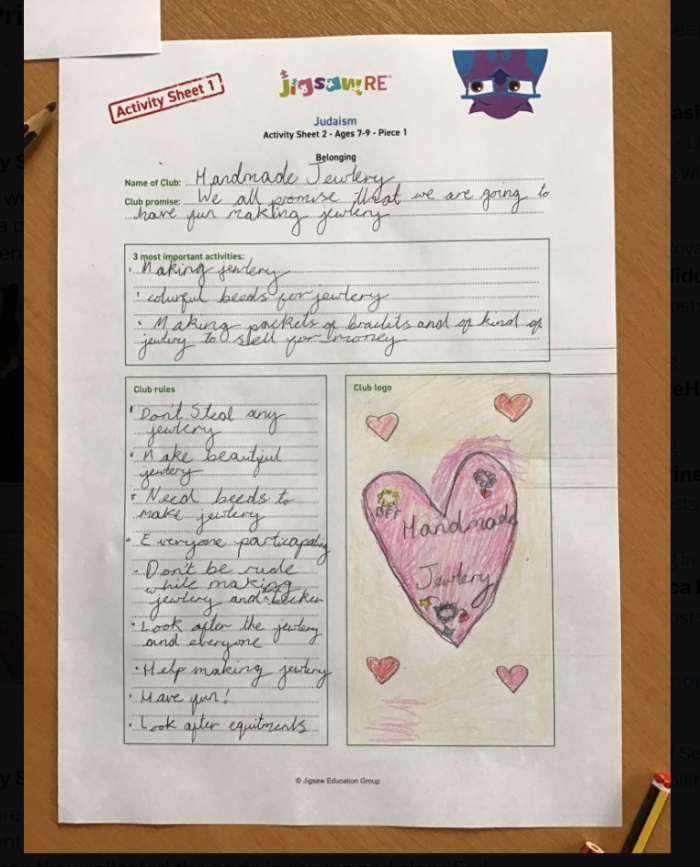 Activity Sheet 1
jigsawRE
Judaism
Activity Sheet 2 - Ages 7-9 - Piece 1
Belonging
Name of Club: Handmade Jewlery
Club promise: We all promise that we are going to
have fun making jewlery
3 most important activities:
· Making jewlery
· colurful beeds for jewlery
· Making packets of braclets and of kind of
jewlery to sell for money
Club rules
· Don't Steal any
jewlery
· Make beautiful
jewlery
· Need beeds to
make jewlery
· Everyone particapating
· Don't be rude
while making
jewlery and
· Look after the jewlery
and everyone
· Help making jewlery
· Have fun!
· Look after equitments
Club logo
Handmade
Jewlery
© Jigsaw Education Group